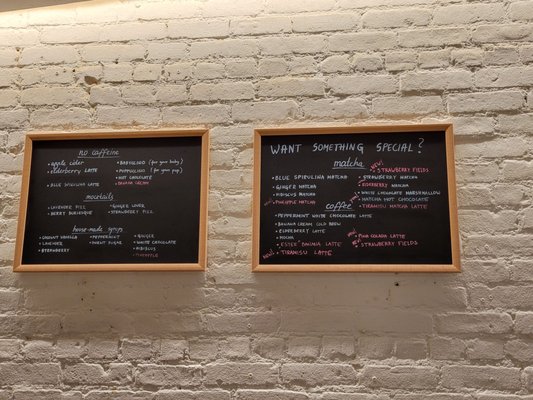 no caffeine
• apple cider
• elderberry latte
• blue spirulina latte
• babyccino (for your baby)
• puppuccino (for your pup)
• hot chocolate
• banana cream
mocktails
• lavender fizz
• berry burlesque
• ginger lover
• strawberry fizz
house-made syrups
• lavender
• strawberry
• peppermint
• ginger
• white chocolate
• hibiscus
• pineapple
WANT SOMETHING SPECIAL?
matcha
• BLUE SPIRULINA MATCHA
• GINGER MATCHA
• HIBISCUS MATCHA
• PINEAPPLE MATCHA
NEW! STRAWBERRY FIELDS
• STRAWBERRY MATCHA
• ELDERBERRY MATCHA
• WHITE CHOCOLATE MARSHMALLOW
• MATCHA HOT CHOCOLATE
• TIRAMISU MATCHA LATTE
coffee
• PEPPERMINT WHITE CHOCOLATE LATTE
• BANANA CREAM COLD BREW
• ELDERBERRY LATTE
• MOCHA
BANANA LATTE
• TIRAMISU LATTE
• PINA COLADA LATTE
• STRAWBERRY FIELDS